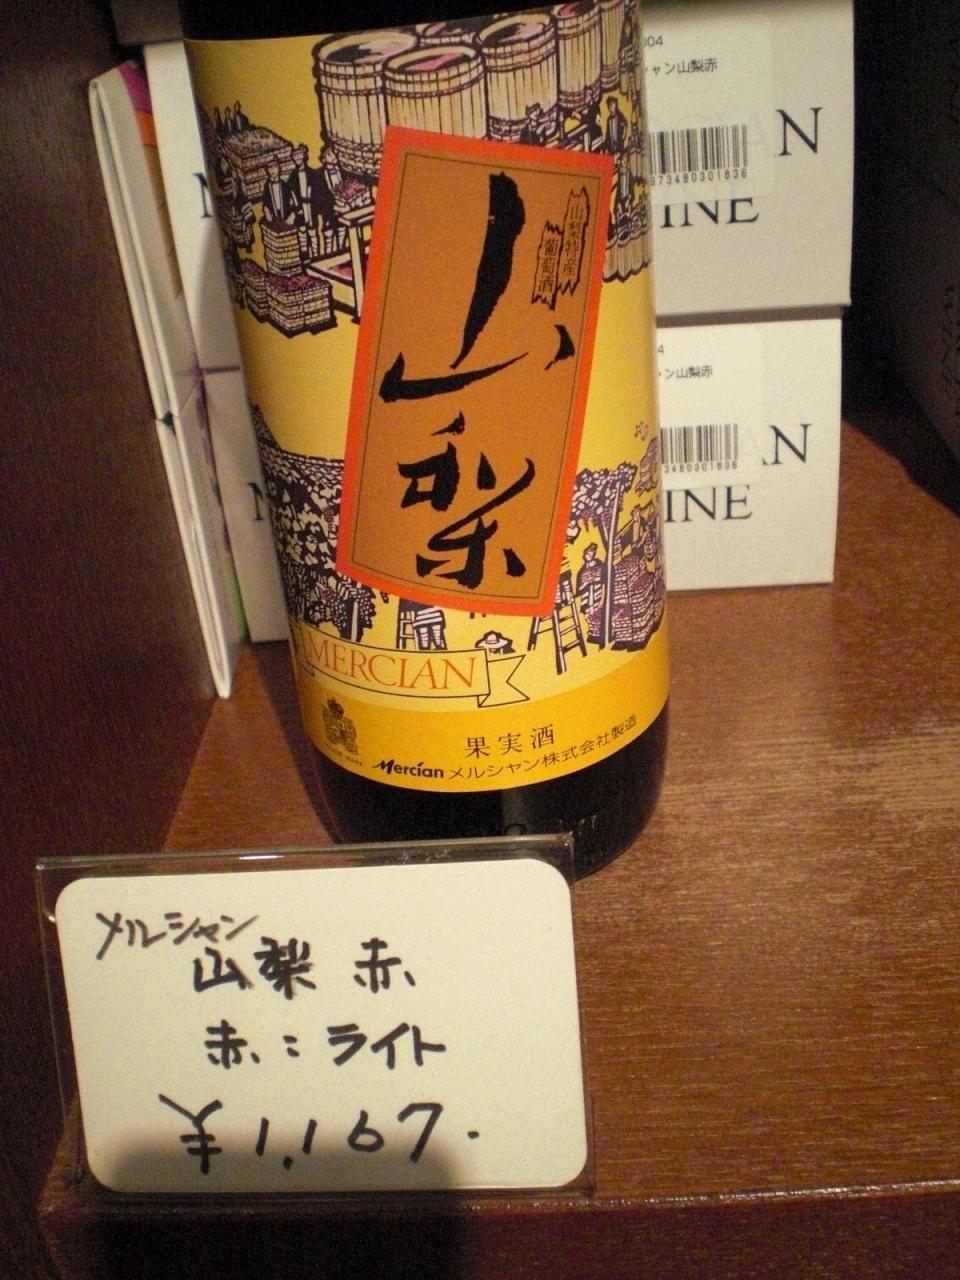 004
ャン山梨赤
AN
973480301836
INE
山梨
山梨特産
葡萄酒
4
ャン山梨赤
AN
3480301836
INE
MERCIAN
果実酒
Mercian メルシャン株式会社製造
メルシャン
山梨 赤
赤:ライト
¥1,167.